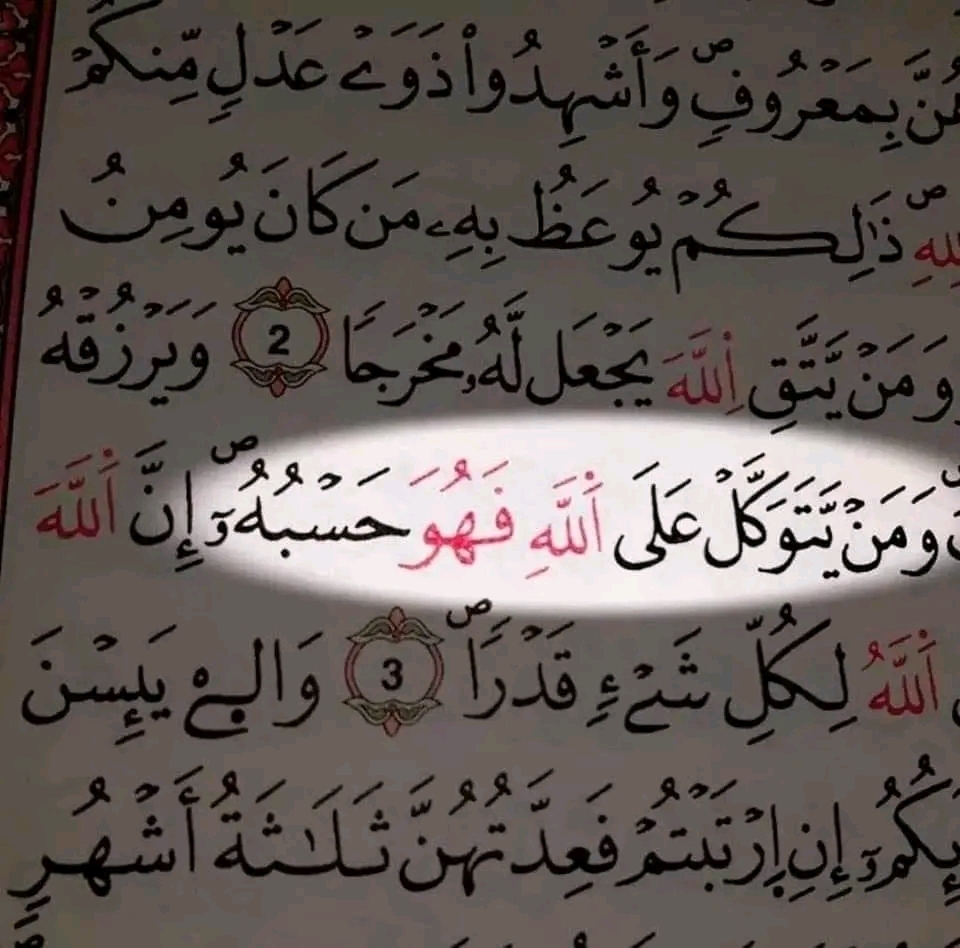 بِمَعْرُوفٖ وَأَشْهِدُواْ ذَوَےْ عَدْلٖ مِّنكُمْ
ذَٰلِكُمْ يُوعَظُ بِهِۦ مَن كَانَ يُومِنُ
وَمَنْ يَّتَّقِ اِ۬للَّهَ يَجْعَل لَّهُۥ مَخْرَجاٗ 2 وَيَرْزُقْهُ
وَمَنْ يَّتَوَكَّلْ عَلَى اَ۬للَّهِ فَهُوَ حَسْبُهُۥٓ إِنَّ اَ۬للَّهَ
اَ۬للَّهُ لِكُلِّ شَےْءٖ قَدْراٗ 3 وَالےِ يَئِسْنَ
إِنِ اِ۪رْتَبْتُمْ فَعِدَّتُهُنَّ ثَلَٰثَةُ أَشْهُرٖ